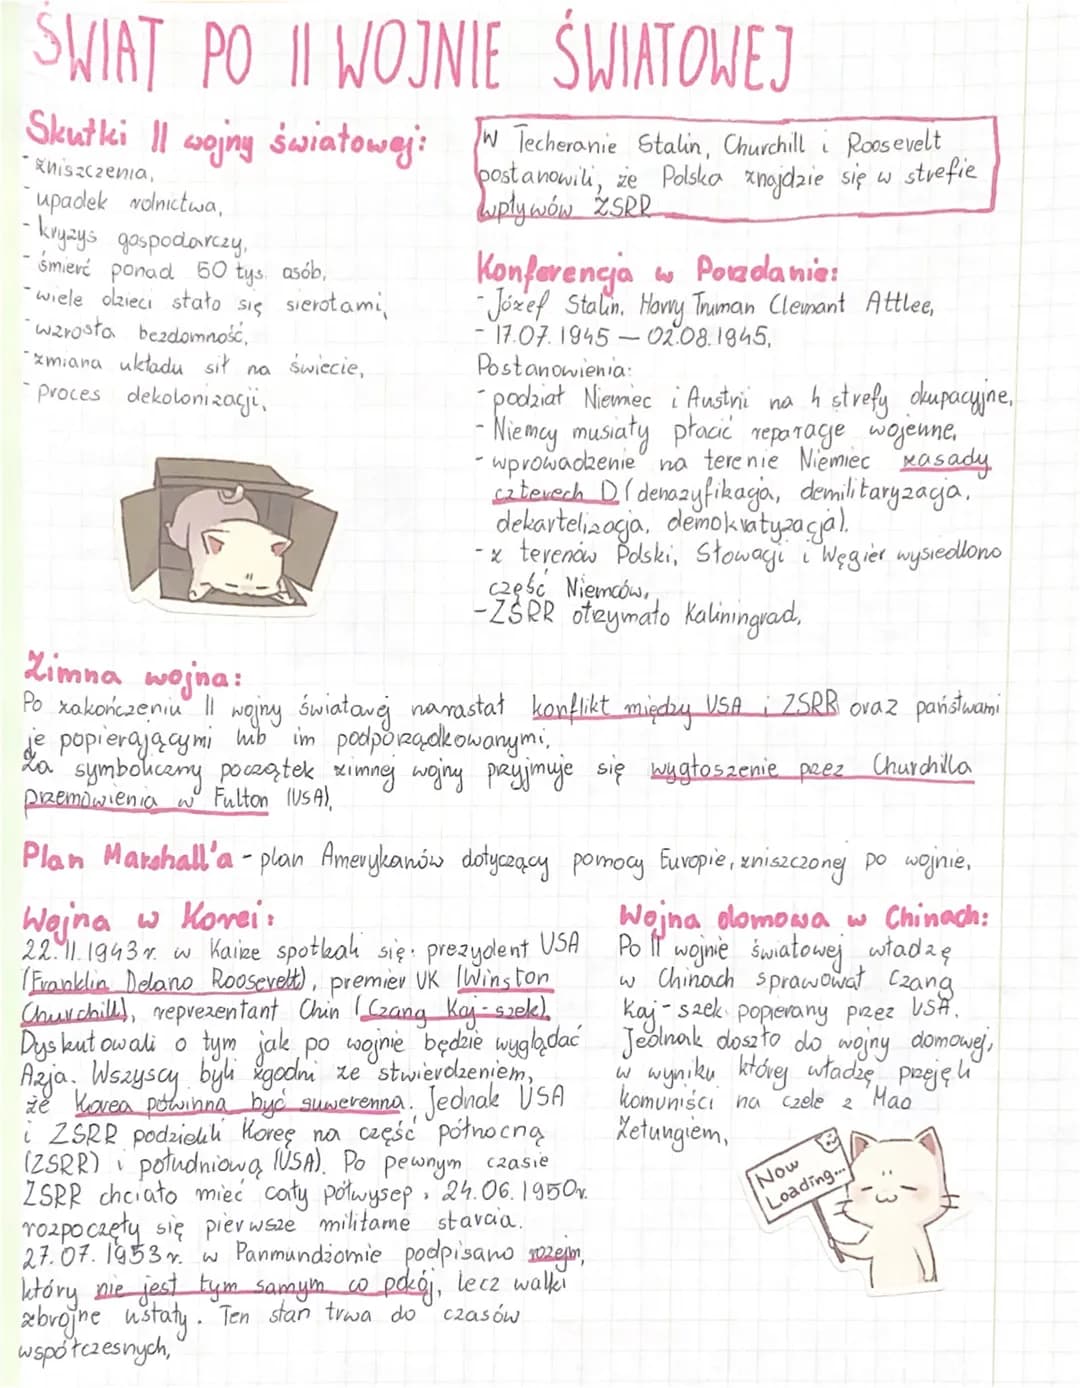 ŚWIAT PO II WOJNIE ŚWIATOWEJ
Skutki II wojny światowej:
- zniszczenia,
- upadek rolnictwa,
- kryzys gospodarczy,
- śmierć ponad 50 tys. osób,
- wiele dzieci stało się sierotami,
- wzrosła bezdomność,
- zmiana układu sił na świecie,
- proces dekolonizacji,
W Techeranie Stalin, Churchill i Roosevelt
postanowili, że Polska znajdzie się w strefie
wpływów ZSRR
Konferencja w Poczdanie:
- Józef Stalin, Harry Truman Clemant Attlee,
- 17.07.1945 – 02.08.1945,
Postanowienia:
- podział Niemiec i Austrii na 4 strefy okupacyjne,
- Niemcy musiały płacić reparacje wojenne,
- wprowadzenie na terenie Niemiec zasady
czterech D (denazyfikacja, demilitaryzacja,
dekartelizacja, demokratyzacja).
- z terenów Polski, Słowacji i Węgier wysiedlono
część Niemców,
- ZSRR otrzymało Kaliningrad,
Zimna wojna:
Po zakończeniu II wojny światowej narastał konflikt między USA i ZSRR oraz państwami
je popierającymi lub im podporządkowanymi,
Za symboliczny początek zimnej wojny przyjmuje się wygłoszenie przez Churchilla
przemówienia w Fulton (USA),
Plan Marshall'a - plan Amerykanów dotyczący pomocy Europie, zniszczonej po wojnie,
Wojna w Korei:
22.11.1943 r. w Kairze spotkali się: prezydent USA
(Franklin Delano Roosevelt), premier UK (Winston
Churchill), reprezentant Chin (Czang Kaj-szek)
Dyskutowali o tym jak po wojnie będzie wyglądać
Azja. Wszyscy byli zgodni ze stwierdzeniem,
że Korea powinna być suwerenna. Jednak USA
i ZSRR podzielili Koreę na część północną
(ZSRR) i południową (USA). Po pewnym czasie
ZSRR chciało mieć cały półwysep, 24.06.1950r.
rozpoczęły się pierwsze militarne starcia.
27.07.1953 r. w Panmundżomie podpisano rozejm,
który nie jest tym samym co pokój, lecz walki
zbrojne ustały. Ten stan trwa do czasów
współczesnych,
Wojna domowa w Chinach:
Po II wojnie światowej władzę
w Chinach sprawował Czang
Kaj-szek popierany przez USA.
Jednak doszło do wojny domowej,
w wyniku której władzę przejęli
komuniści na czele z Mao
Zetungiem,
Now
Loading...